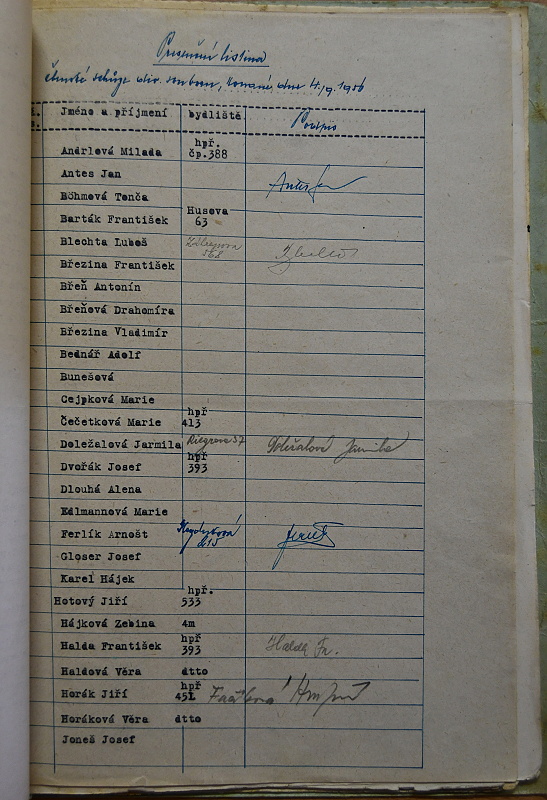 Presenční listina
členské schůze div. souboru, konané dne 4./9. 1956
Jméno a příjmení bydliště Podpis
Andrlová Milada hpř. čp.388
Antes Jan Antes Jan
Böhmová Tonča
Barták František Husova 63
Blechta Luboš
Březina František
Břeň Antonín
Břeňová Drahomíra
Březina Vladimír
Bednář Adolf
Bunešová
Cejpková Marie
Čečetková Marie hpř 413
Doležalová Jarmila Riegrova 37 Doležalová Jarmila
Dvořák Josef hpř 393
Dlouhá Alena
Edlmannová Marie
Ferlík Arnošt
Gloser Josef
Karel Hájek
Hotový Jiří hpř. 533
Hájková Zebina 4m
Halda František hpř 393 Halda Fr.
Haldová Věra dtto
Horák Jiří hpř 451
Horáková Věra dtto
Joneš Josef